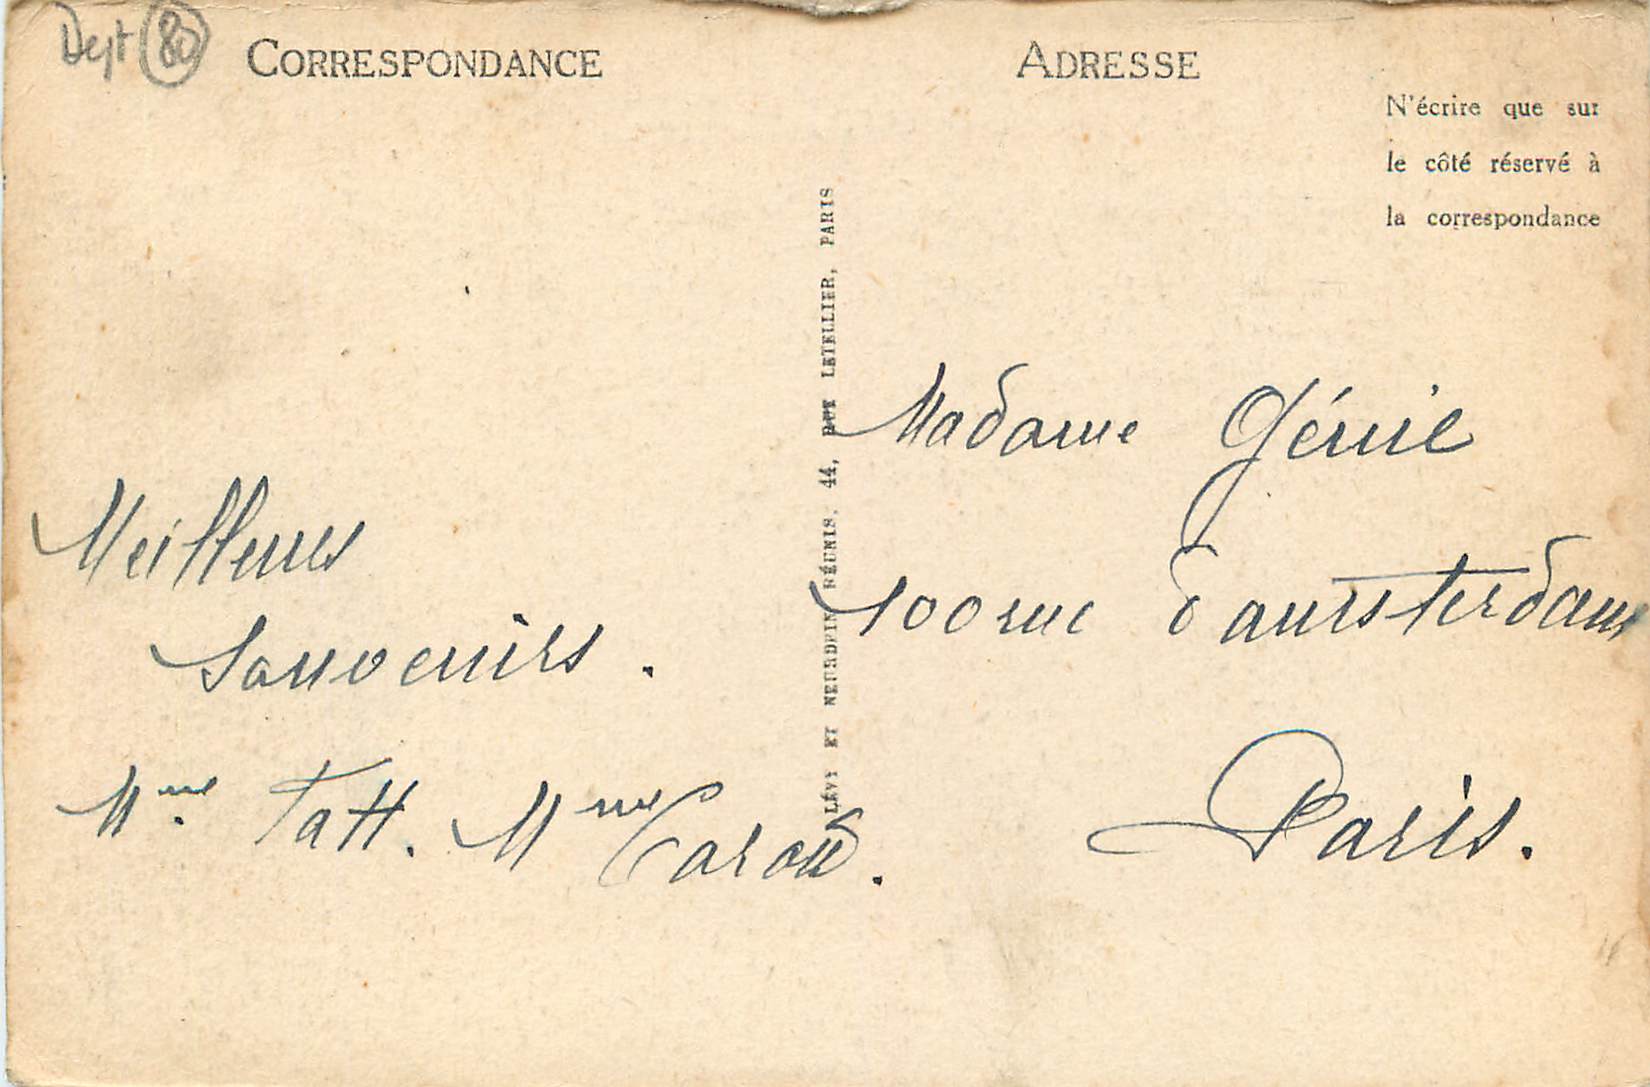 Dept 80
CORRESPONDANCE
Meilleurs
Souvenirs.
Mme Tatt. Mme Caron.
LÉVY ET NEURDEIN RÉUNIS. 44, RUE LETELLIER, PARIS
ADRESSE
N'écrire que sur
le côté réservé à
la correspondance
Madame Génie
100 rue d'amsterdam
Paris.